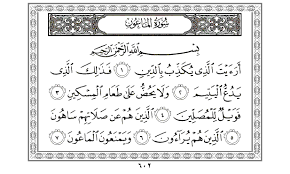 سُورَةُ الْمَاعُونِ
بِسْمِ اللَّهِ الرَّحْمَٰنِ الرَّحِيمِ
أَرَءَيْتَ الَّذِي يُكَذِّبُ بِالدِّينِ ١ فَذَٰلِكَ الَّذِي
يَدُعُّ الْيَتِيمَ ٢ وَلَا يَحُضُّ عَلَىٰ طَعَامِ الْمِسْكِينِ ٣
فَوَيْلٌ لِّلْمُصَلِّينَ ٤ الَّذِينَ هُمْ عَن صَلَاتِهِمْ سَاهُونَ
٥ الَّذِينَ هُمْ يُرَاءُونَ ٦ وَيَمْنَعُونَ الْمَاعُونَ ٧
٦٠٢